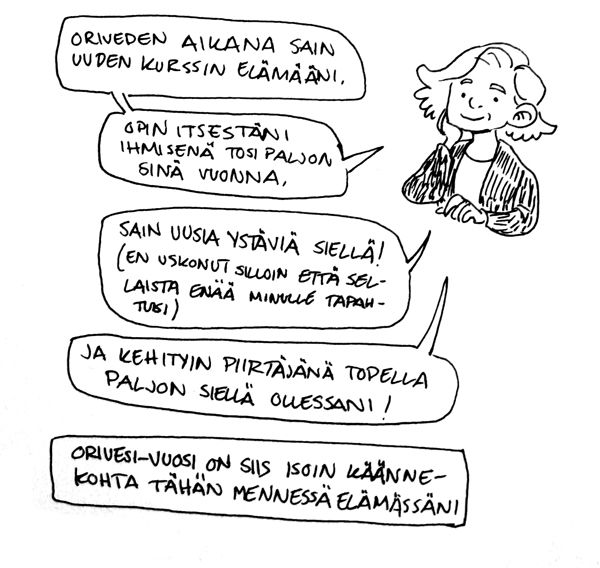 ORIVEDEN AIKANA SAIN
UUDEN KURSSIN ELÄMÄÄNI.
OPIN ITSESTÄNI
IHMISENÄ TOSI PALJON
SINÄ VUONNA.
SAIN UUSIA YSTÄVIÄ SIELLÄ!
(EN USKONUT SILLOIN ETTÄ SEL-
LAISTA ENÄÄ MINULLE TAPAH-
TUISI)
JA KEHITYIN PIIRTÄJÄNÄ TODELLA
PALJON SIELLÄ OLLESSANI!
ORIVESI-VUOSI ON SIIS ISOIN KÄÄNNE-
KOHTA TÄHÄN MENNESSÄ ELÄMÄSSÄNI